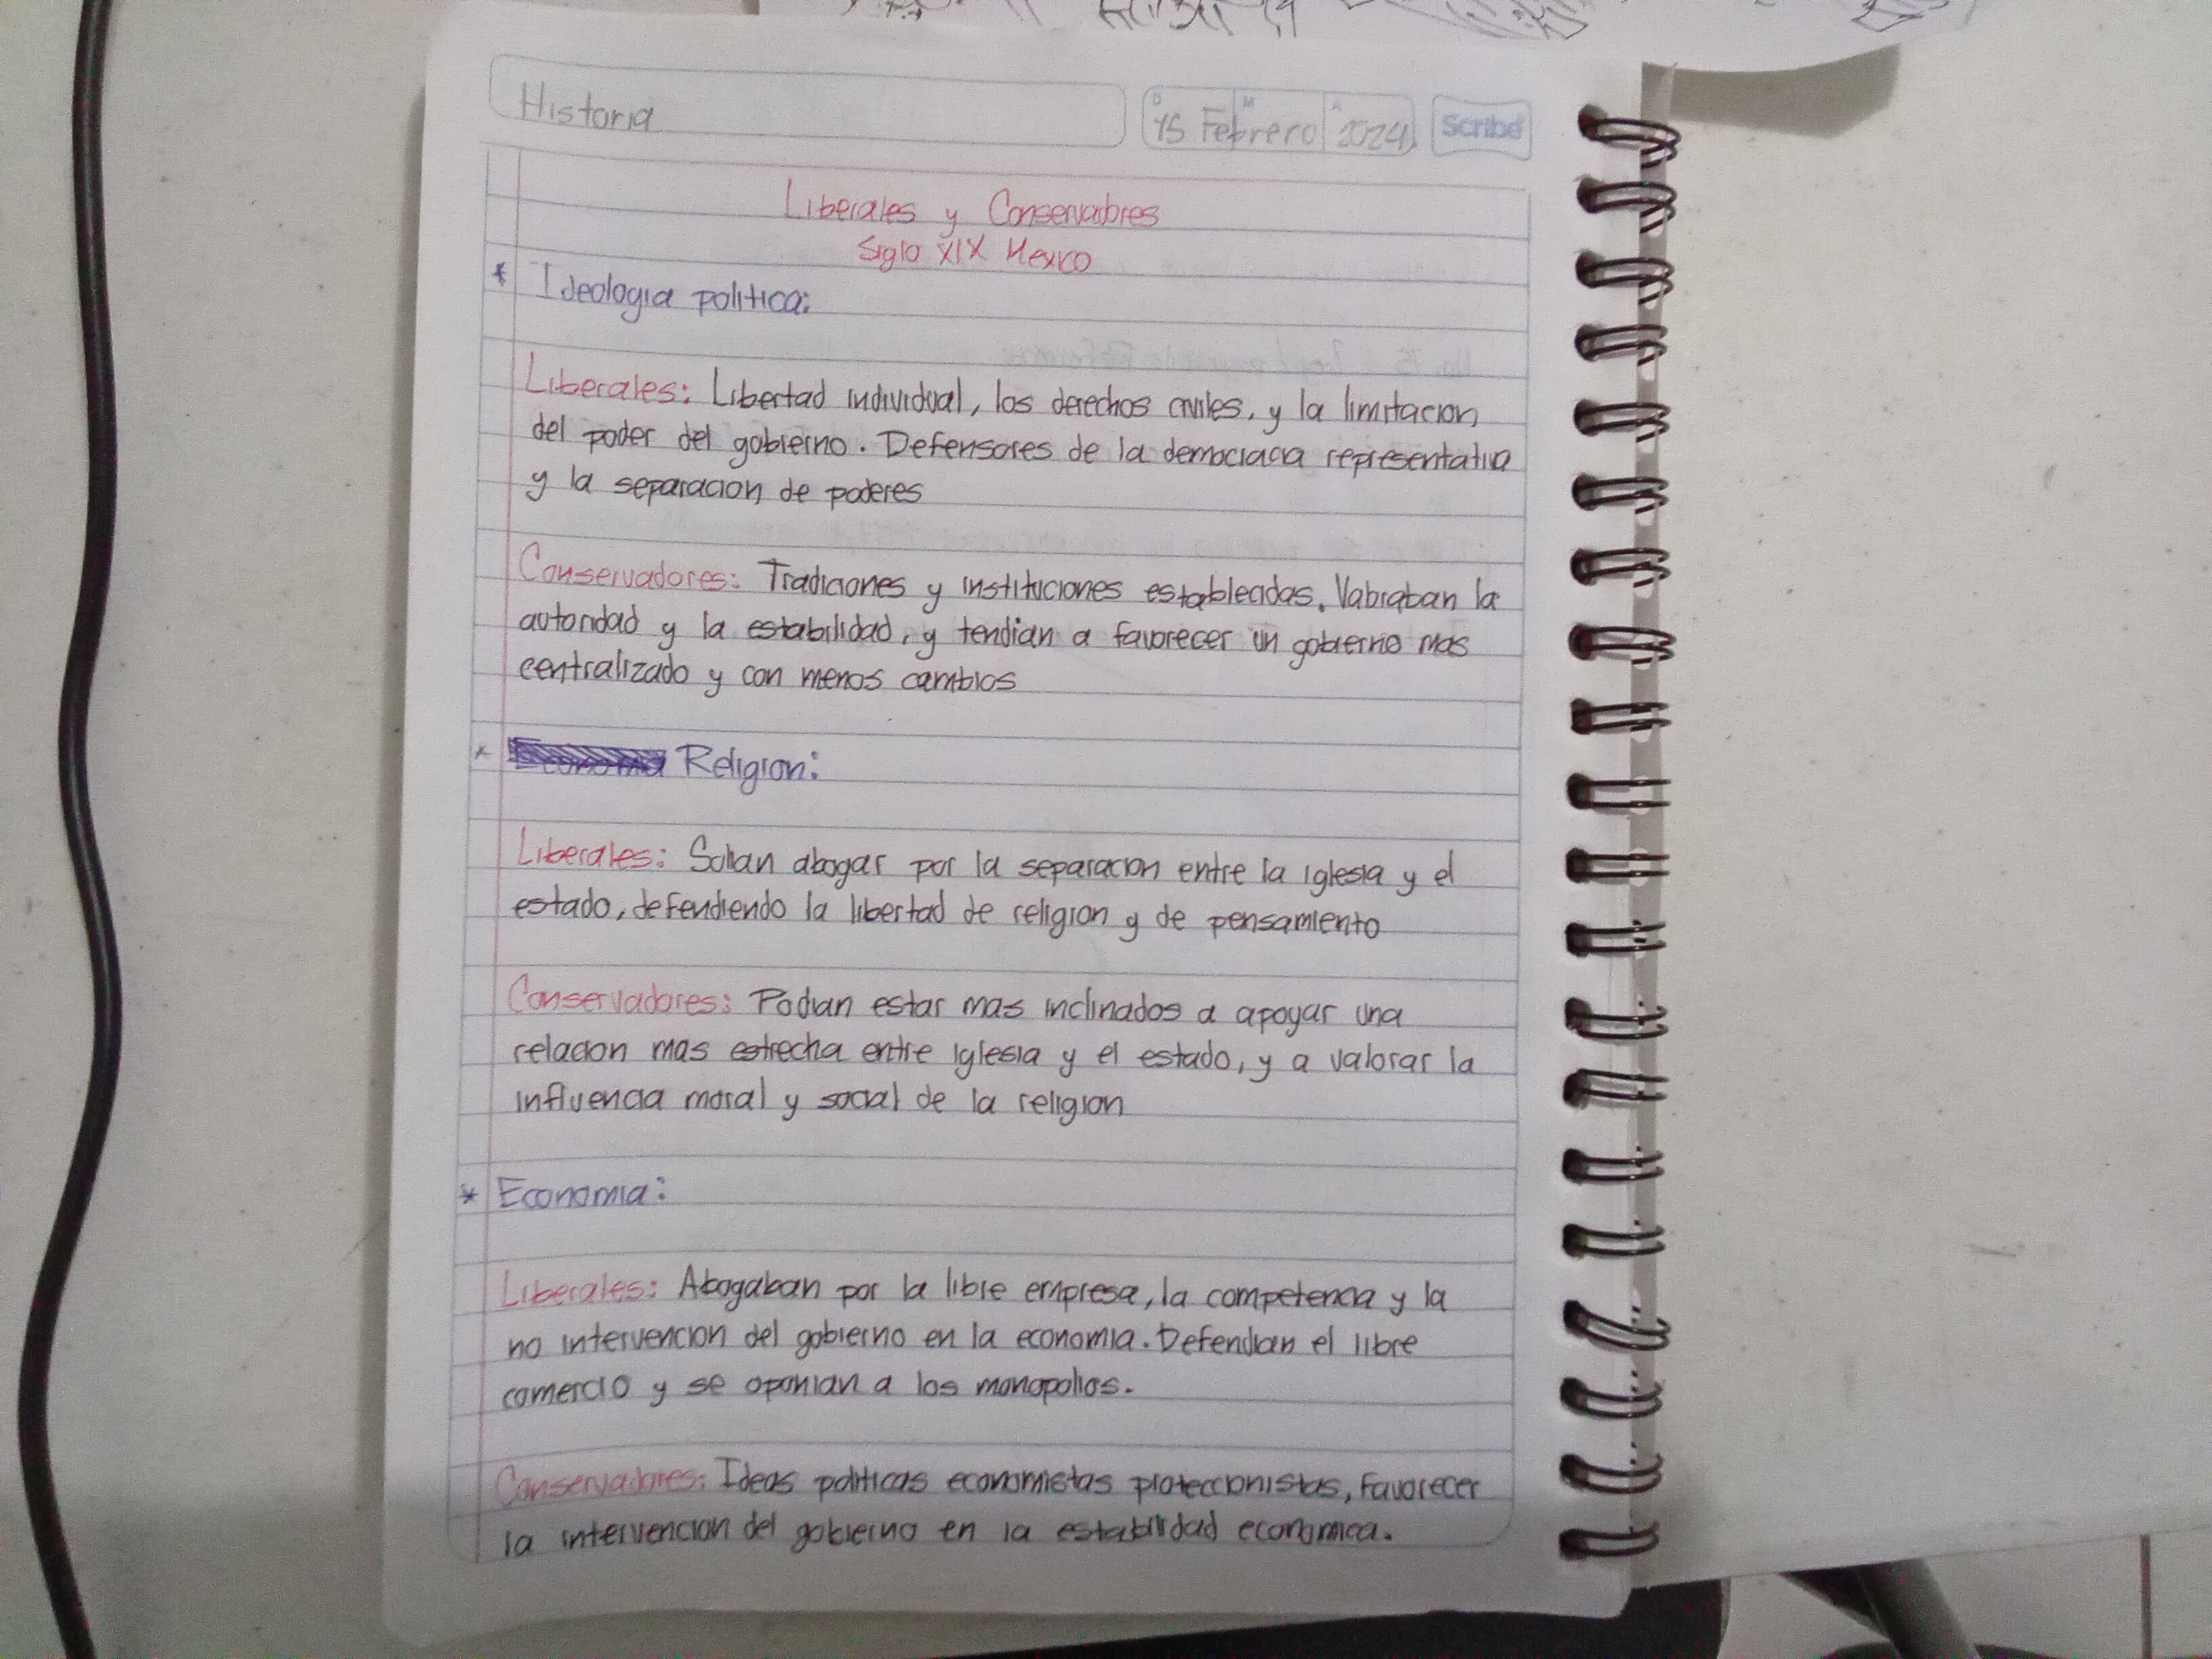 Historia
D M A
15 Febrero 2024
Scribe
Liberales y Conservadores
Siglo XIX Mexico
* Ideologia politica:
Liberales: Libertad individual, los derechos civiles, y la limitacion
del poder del gobierno. Defensores de la democracia representativa
y la separacion de poderes
Conservadores: Tradiciones y instituciones establecidas. Valoraban la
autoridad y la estabilidad, y tendian a favorecer un gobierno mas
centralizado y con menos cambios
* Economia Religion:
Liberales: Solian abogar por la separacion entre la iglesia y el
estado, defendiendo la libertad de religion y de pensamiento
Conservadores: Podian estar mas inclinados a apoyar una
relacion mas estrecha entre iglesia y el estado, y a valorar la
influencia moral y social de la religion
* Economia:
Liberales: Abogaban por la libre empresa, la competencia y la
no intervencion del gobierno en la economia. Defendian el libre
comercio y se oponian a los monopolios.
Conservadores: Ideas politicas economistas proteccionistas, favorecer
la intervencion del gobierno en la estabilidad economica.